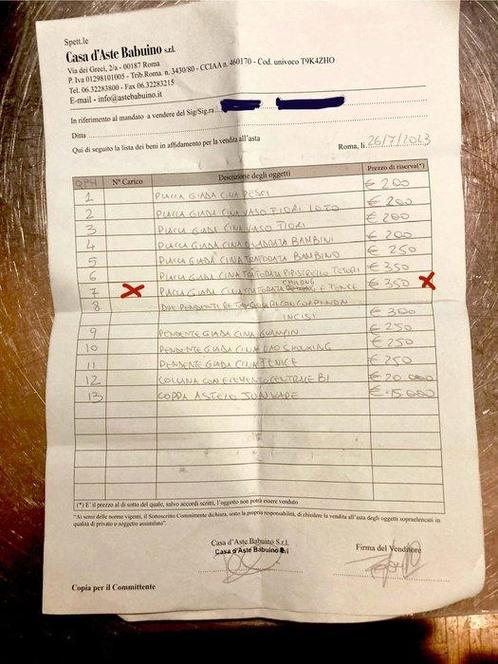 Spett.le
Casa d'Aste Babuino s.r.l.
Via dei Greci, 2/a - 00187 Roma
P. Iva 01298101005 - Trib.Roma. n. 3430/80 - CCIAA n. 460170 - Cod. univoco T9K4ZHO
Tel. 06.32283800
Fax 06.32283215
E-mail - info@astebabuino.it
In riferimento al mandato a vendere del Sig/Sig.ra
Ditta
Qui di seguito la lista dei beni in affidamento per la vendita all'asta
Roma, lì 26/7/2023
N° Carico Descrizione degli oggetti Prezzo di riserva(*)
1 PLACCA GIADA CINA PESCI € 200
2 PLACCA GIADA CINA VASO FIORI LOTO € 200
3 PLACCA GIADA CINA VASO FIORI € 200
4 PLACCA GIADA CINA QUADRATA BAMBINI € 200
5 PLACCA GIADA CINA TRAFORATA BAMBINO € 250
6 PLACCA GIADA CINA TRAFORATA PIPISTRELLO TESORI € 350
7 X PLACCA GIADA CINA TRAFORATA CHILONG E FENICE € 350 X
8 DUE PENDENTI
INCISI € 300
9 PENDENTE GIADA CINA GUANYIN € 250
10 PENDENTE GIADA CINA € 250
11 PENDENTE GIADA CINA FENICE € 250
12 COLLANA CON ELEMENTO CENTRALE BI € 20 000
13 COPPA A STELO € 15 000
(*) E' il prezzo al di sotto del quale, salvo accordi scritti, l'oggetto non potrà essere venduto
"Ai sensi delle norme vigenti, il Sottoscritto Committente dichiara, sotto la propria responsabilità, di chiedere la vendita all'asta degli oggetti sopraelencati in
qualità di privato o soggetto assimilato".
Casa d'Aste Babuino S.r.l.
Casa d'Aste Babuino
Firma del Venditore
Copia per il Committente